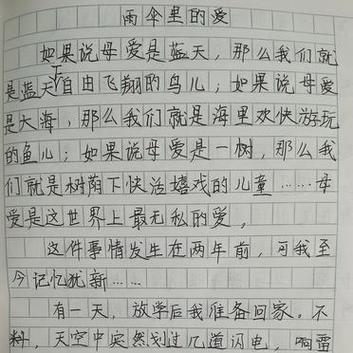 雨伞里的爱
如果说母爱是蓝天，那么我们就
是蓝天下自由飞翔的鸟儿；如果说母爱
是大海，那么我们就是海里欢快游玩
的鱼儿；如果说母爱是一树，那么我
们就是树荫下快活嬉戏的儿童……母
爱是这世界上最无私的爱，
这件事情发生在两年前，可我至
今记忆犹新……
有一天，放学后我准备回家。不
料，天空中突然划过几道闪电，响雷